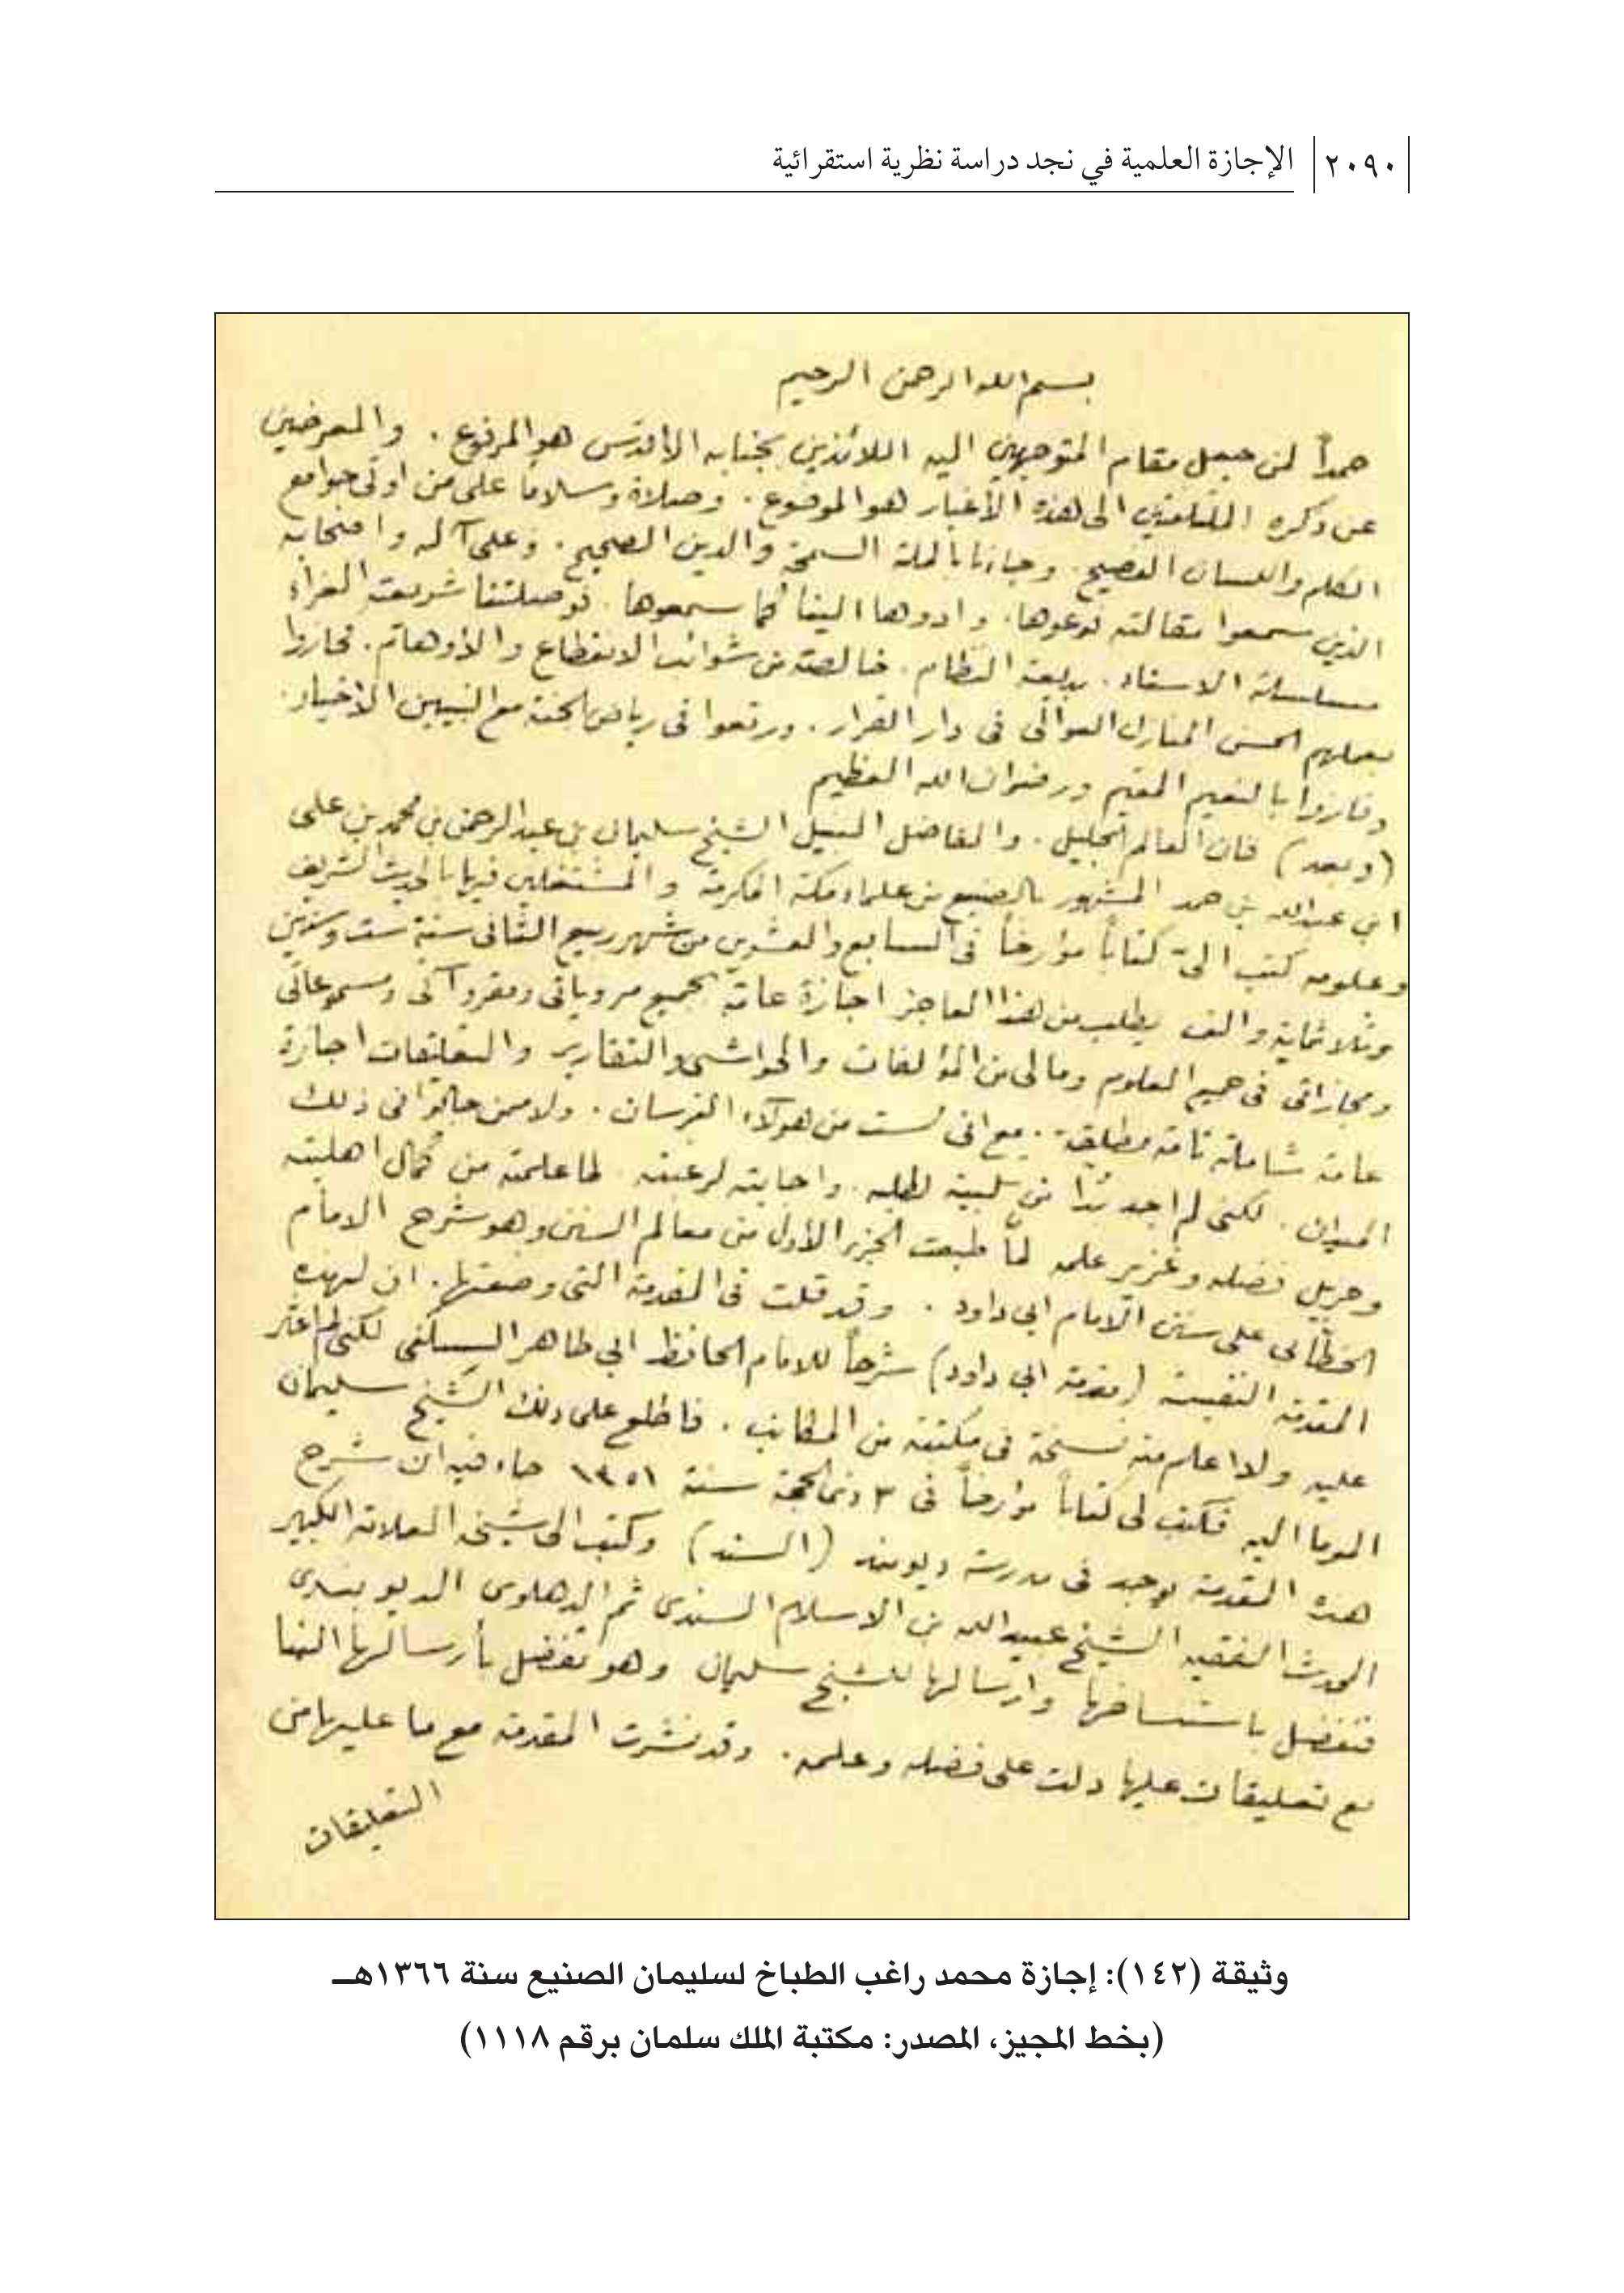 ٢٠٩٠ الإجازة العلمية في نجد دراسة نظرية استقرائية
بسم الله الرحمن الرحيم
حمداً لمن جعل مقام المتوجهين اليه اللائذين بجنابه الاقدس هو المرفوع . والمعرضين
عن ذكره الملتفتين الى هذه الأغيار هو الموضوع . وصلاة وسلاما على من اوتى جوامع
الكلم واللسان الفصيح . وجاءنا بالملة السمحة والدين الصحيح . وعلى آله واصحابه
الذين سمعوا مقالته فوعوها . وادوها الينا كما سمعوها . فوصلتنا شريعته الغراء
مسلسلة الاسناد . بديعة النظام . خالصة من شوائب الانقطاع والاوهام . فحازوا
بعملهم احسن المنازل العوالى فى دار القرار . ورتعوا فى رياض الجنة مع النبيين الاخيار .
وفازوا بالنعيم المقيم ورضوان الله العظيم
(وبعد) فان العالم الجليل . والفاضل النبيل الشيخ سليمان بن عبد الرحمن بن محمد بن على
ابن عبدالله بن حمد المشهور بالصنيع من علماء مكة المكرمة والمشتغلين فيها بالحديث الشريف
وعلومه كتب الىّ كتاباً مؤرخاً فى السابع والعشرين من شهر ربيع الثانى سنة ست وستين
وثلاثماية والف يطلب من هذا العاجز اجازة عامة بجميع مروياتى ومقروآتى ومسموعاتى
ومجازاتى فى جميع العلوم ومالى من المؤلفات والحواشى والتقارير والتعليقات اجازة
عامة شاملة تامة مطلقة . مع انى لست من هؤلاء الفرسان . ولا ممن جالوا فى ذلك
الميدان . لكنى لم اجد بدّا من تلبية لطلبه . واجابته لرغبته . لما علمته من كمال اهليته
وجزيل فضله وغزير علمه لمّا طبعت الجزء الأول من معالم السنن وهو شرح الامام
الخطابى على سنن الامام ابى داود . وقد قلت فى المقدمة التى وضعتها . ان لهذه
المقدمة النفيسة (مقدمة ابى داود) شرحاً للامام الحافظ ابى طاهر السلفى لكنى لم اعثر
عليه ولا اعلم منه نسخة فى مكتبة من المكاتب . فاطلع على ذلك الشيخ سليمان
الموما اليه فكتب لى كتاباً مؤارخاً فى ٣ ذى الحجة سنة ١٣٥١ جاء فيه ان شرح
هذه المقدمة يوجد فى مدرسة ديوبند (السند) وكتب الى شيخه العلامة الكبير
المحدث الفقيه الشيخ عبيد الله بن الاسلام السندى ثم الدهلوى الديوبندى
فتفضل باستنساخها وارسالها للشيخ سليمان وهو تفضل بأرسالها الينا
مع تعليقات عليها دلت على فضله وعلمه . وقد نشرت المقدمة مع ما عليها من
التعليقات
وثيقة (١٤٢): إجازة محمد راغب الطباخ لسليمان الصنيع سنة ١٣٦٦هـ
(بخط المجيز، المصدر: مكتبة الملك سلمان برقم ١١١٨)